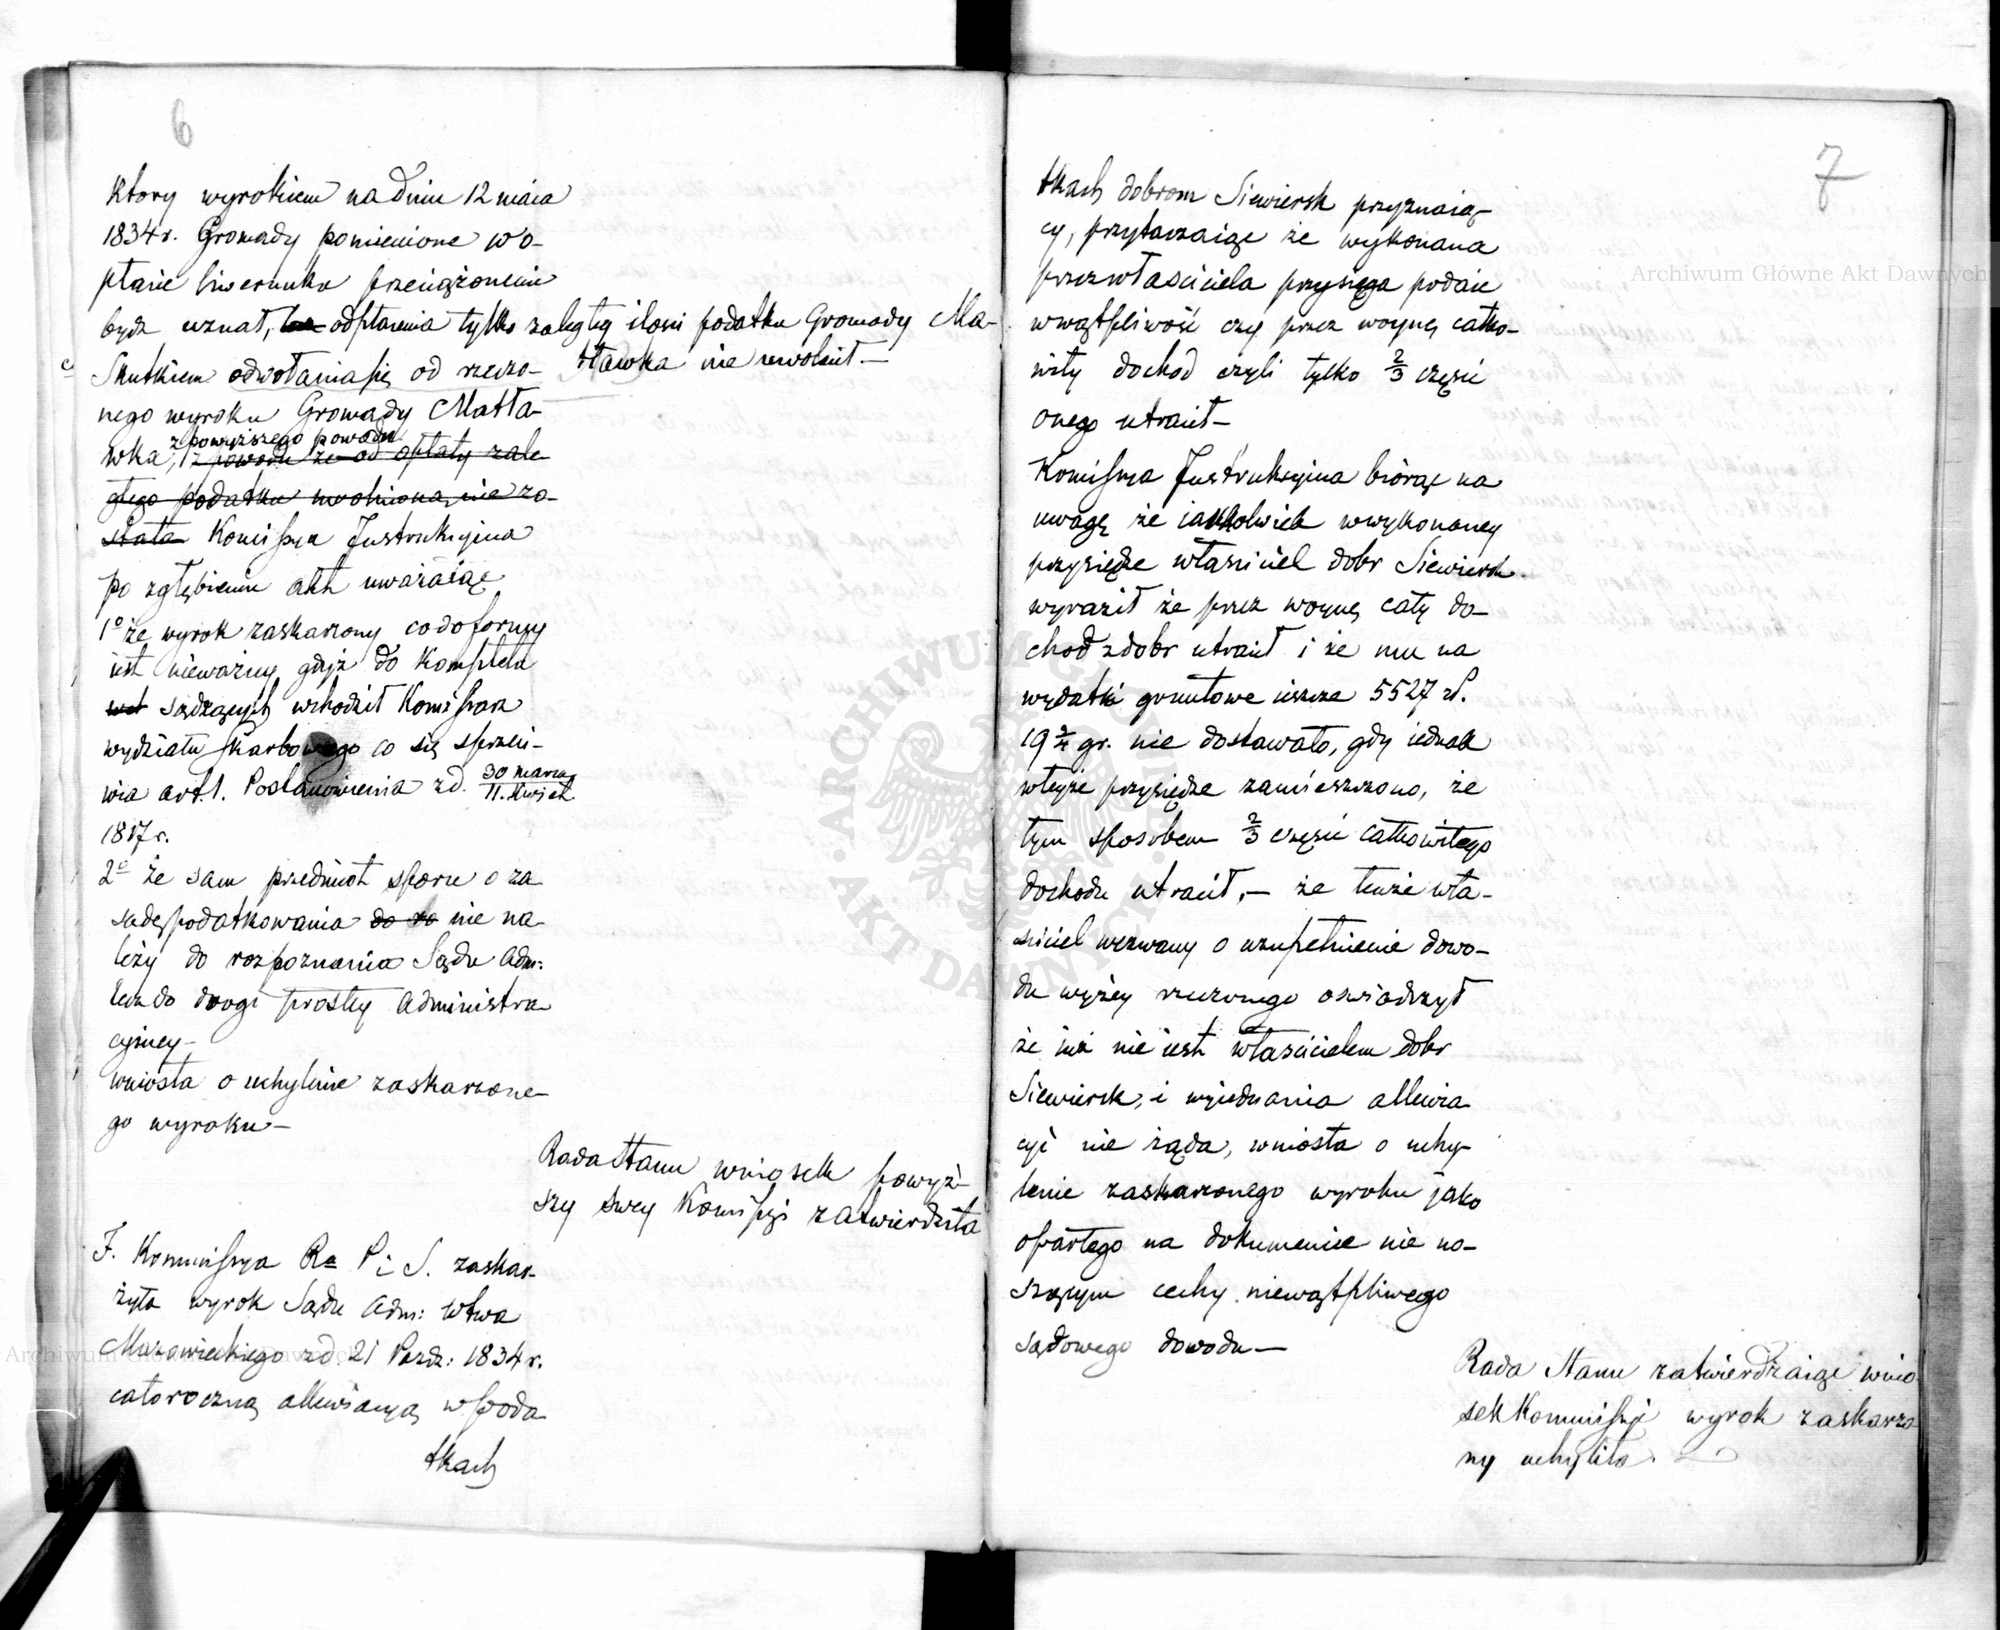 6
Ktory wyrokiem na dniu 12 maia
1834 r. Gromady pomienione w o-
płacie liwerunku przeciążonemi
bydź uznał, od płacenia tylko zaległey ilosci podatku Gromady Ma-
tławka nie uwolnił.—
Skutkiem odwołania się od rzeczo-
nego wyroku Gromady Matła-
wka, z powyższego powodu
z powodu że od opłaty zale-
głego podatku uwolnioną nie zo-
stała Komissya Instrukcyina
po zgłębieniu akt uważaiąc
1o że wyrok zaskarżony co do formy
iest nieważny gdyż do kompletu
sądzących wchodził Komissarz
wydziału skarbowego co się sprzeci-
wia art. 1. Postanowienia z d. 30 marca / 11. Kwiet.
1817 r.
2o że sam przedmiot sporu o za
sadę podatkowania do nie na-
leży do rozpoznania Sądu Adm:
lecz do drogi prostey administra
cyiney—
wniosła o uchylenie zaskarzone-
go wyroku—
Rada Stanu wniosek powyż-
szy swey Komissyi zatwierdziła
F. Kommissya Ra P i S. zaskar-
żyła wyrok Sądu Adm: Wtwa
Mazowieckiego z d. 21 Pazdz: 1834 r.
całoroczną allewiacyą w poda-
tkach
7
tkach dobrom Siewiersk przyznaią-
cy, przytaczaiąc że wykonana
przez właściciela przysięga podaie
w wątpliwość czy przez woynę całko-
wity dochod czyli tylko 2/3 części
onego utracił—
Komissya Instrukcyina biorąc na
uwagę że iakkolwiek w wykonaney
przysiędze własciciel dobr Siewiersk
wyraził że przez woynę cały do-
chod z dobr utracił i że mu na
wydatki gruntowe ieszcze 5527 zł.
19 gr. nie dostawało, gdy iednak
w teyże przysiędze zamieszczono, że
tym sposobem 2/3 części całkowitego
dochodu utracił,— że tenże wła-
sciciel wezwany o uzupełnienie dowo-
du wyżey rzeczonego oswiadczył
że iuż nie iest właścicielem dobr
Siewiersk, i wyiednania allewia
cyi nie żąda, wniosła o uchy-
lenie zaskarzonego wyroku jako
opartego na dokumencie nie no-
szącym cechy niewątpliwego
sądowego dowodu—
Rada Stanu zatwierdzaiąc wnio
sek Kommissyi wyrok zaskarżo
ny uchyliła.
Archiwum Główne Akt Dawnych
Archiwum Główne Akt Dawnych
ARCHIWUM GŁÓWNE AKT DAWNYCH